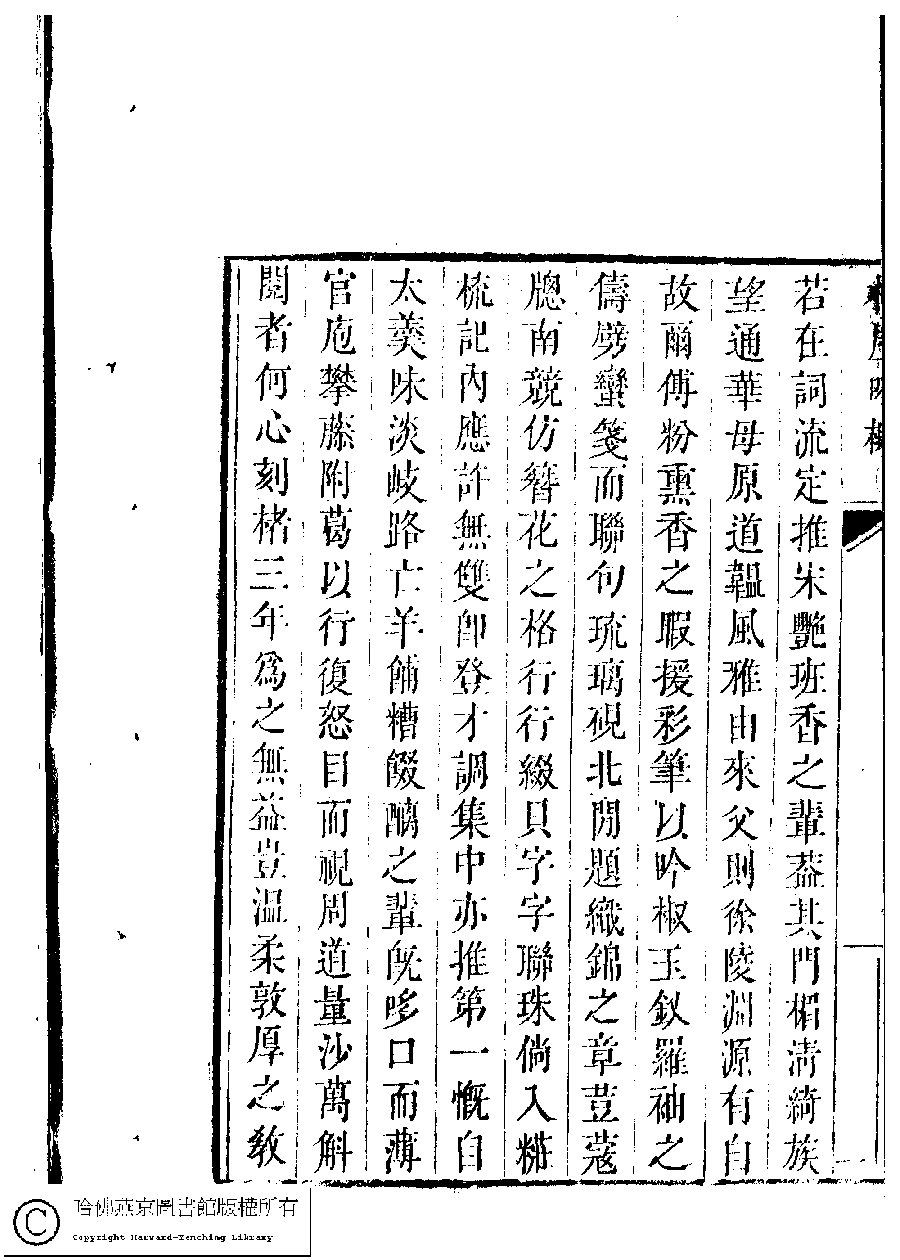 若在詞流定推宋艷班香之輩葢其門楣淸綺族
望通華母原道韞風雅由來父則徐陵淵源有自
故爾傅粉熏香之暇援彩筆以吟椒玉釵羅袖之
儔劈蠻箋而聯句琉璃硯北閒題織錦之章荳蔻
牕南競仿簪花之格行行綴貝字字聯珠倘入糚
梳記內應許無雙卽登才調集中亦推第一慨自
太羹味淡岐路亡羊餔糟餟醨之輩旣哆口而薄
官庖攀藤附葛以行復怒目而視周道量沙萬斛
閱者何心刻楮三年爲之無益豈温柔敦厚之敎
哈佛燕京圖書館版權所有
Copyright Harvard-Yenching Library